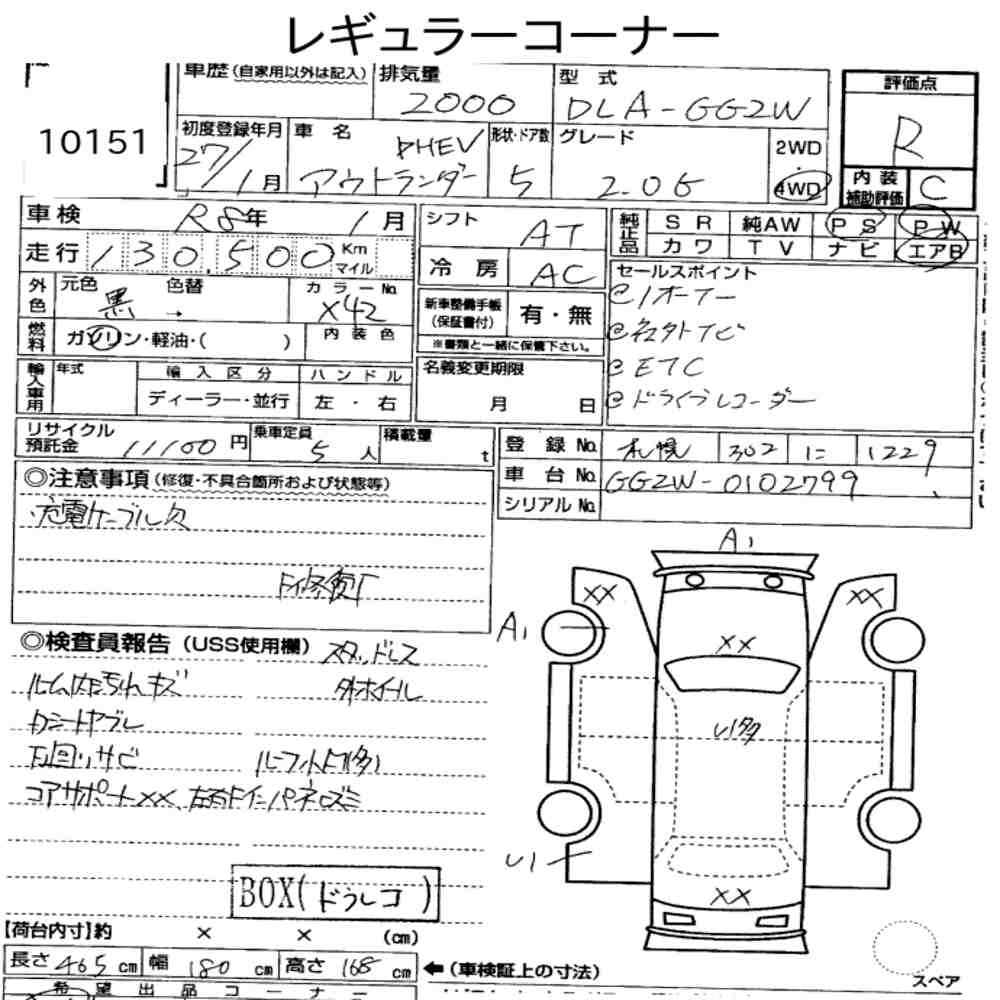 レギュラーコーナー
10151
車歴 (自家用以外は記入) 排気量 2000 型式 DLA-GG2W 評価点 R
初度登録年月 27/1月 車名 PHEV アウトランダー 形状・ドア数 5 グレード 2.0G 2WD・4WD 内装補助評価 C
車検 R8年 1月 シフト AT 純正品 SR 純AW PS PW
走行 130,500 Km マイル 冷房 AC カワ TV ナビ エアB
外色 元色 黒 色替 → カラーNo. X42 新車整備手帳 (保証書付) 有・無
セールスポイント
@1オーナー
@社外ナビ
@ETC
@ドライブレコーダー
燃料 ガソリン・軽油・( ) 内装色 ※書類と一緒に保管下さい。
輸入車用 年式 輸入区分 ハンドル 名義変更期限
ディーラー・並行 左・右 月 日
リサイクル預託金 11100円 乗車定員 5人 積載量 t
登録No. 札幌 302 に 1229
車台No. GG2W-0102799
シリアルNo.
◎注意事項 (修復・不具合箇所および状態等)
充電ケーブル欠
◎検査員報告 (USS使用欄) スタッドレス
外ホイール
シートヤブレ
下回りサビ
コアサポートXX、左右インパネ
BOX(ドラレコ)
A1
A1
XX
XX
XX
XX
【荷台内寸】約 × × (cm)
長さ 465 cm 幅 180 cm 高さ 168 cm ←(車検証上の寸法)
スペア
希望出品コーナー